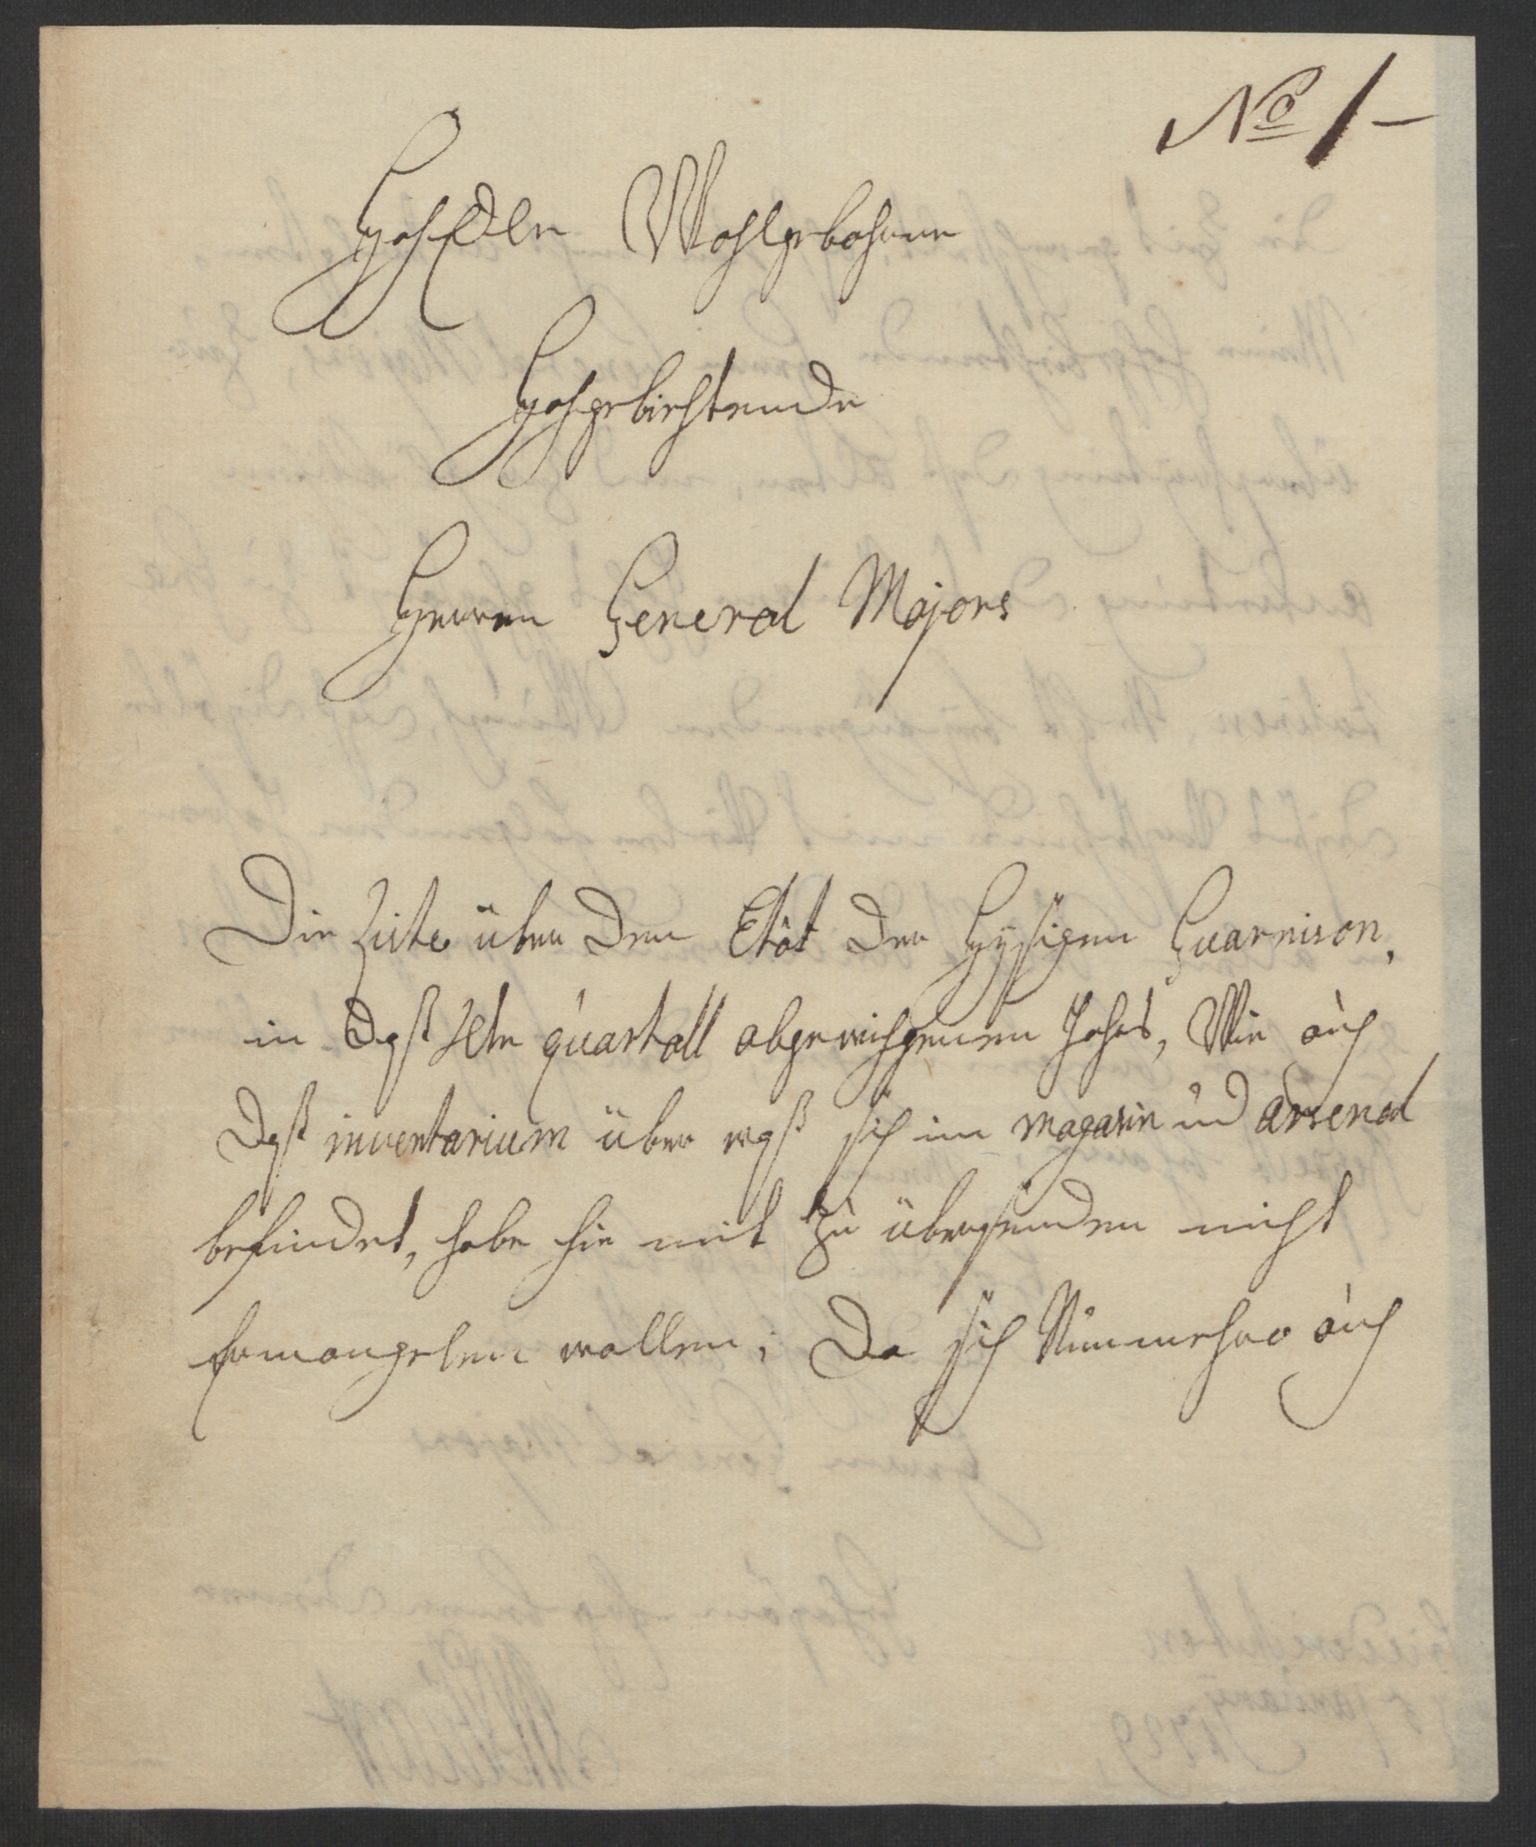 No 1-
HochEdler Wohlgebohrner
Hochgebiehtender
Herren General Majors
Die Liste über den Etât der Hysigen Guarnison,
in daß letzte quartall abgewichgenen Jahrs, Wie auch
daß inventarium über waß sich im magasin und arsenal
befindet, habe hie mit zu übersenden nicht
Ermangelen wollen; Da sich Nunmehro auch